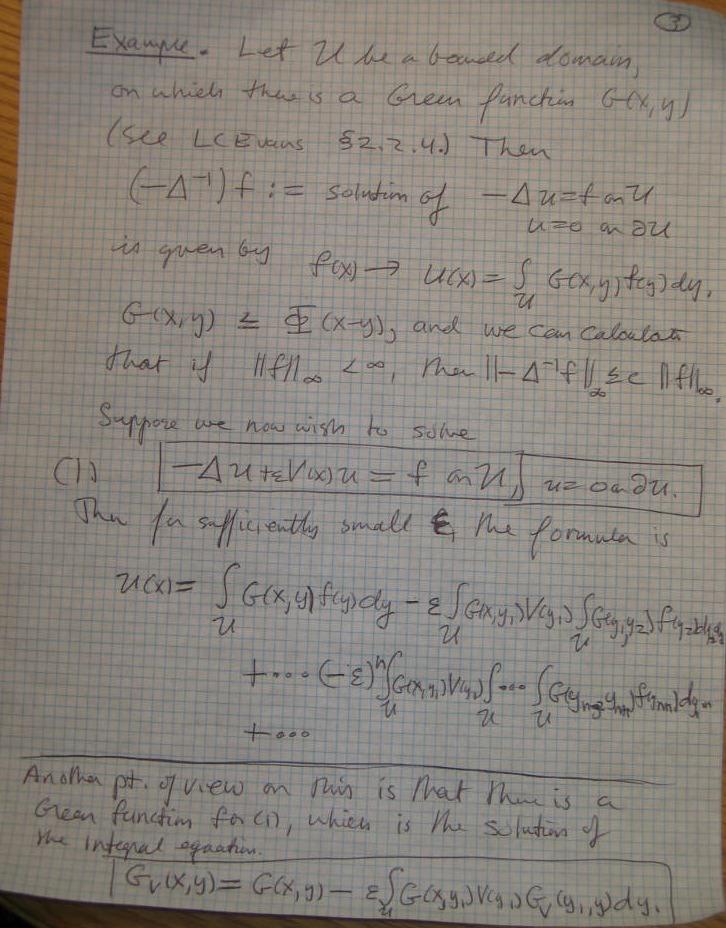 3
Example. Let U be a bounded domain,
on which there is a Green function G(x,y)
(see LCEvans §2.2.4.) Then
(-Δ⁻¹) f := solution of -Δu = f on U
u=0 on ∂U
is given by f(x) → u(x) = ∫_U G(x,y) f(y) dy.
G(x,y) ≤ Φ(x-y), and we can calculate
that if ‖f‖_∞ < ∞, then ‖-Δ⁻¹f‖_∞ ≤ c ‖f‖_∞.
Suppose we now wish to solve
(1) -Δu + εV(x)u = f on U, u = 0 on ∂U.
Then for sufficiently small ε, the formula is
u(x) = ∫_U G(x,y) f(y) dy - ε ∫_U G(x,y₁) V(y₁) ∫_U G(y₁,y₂) f(y₂) dy₂
+ ... (-ε)ⁿ ∫_U G(x,y₁) V(y₁) ∫_U ... ∫_U
+ ...
Another pt. of view on this is that there is a
Green function for (1), which is the solution of
the integral equation.
G_V(x,y) = G(x,y) - ε ∫_U G(x,y₁) V(y₁) G_V(y₁,y) dy₁